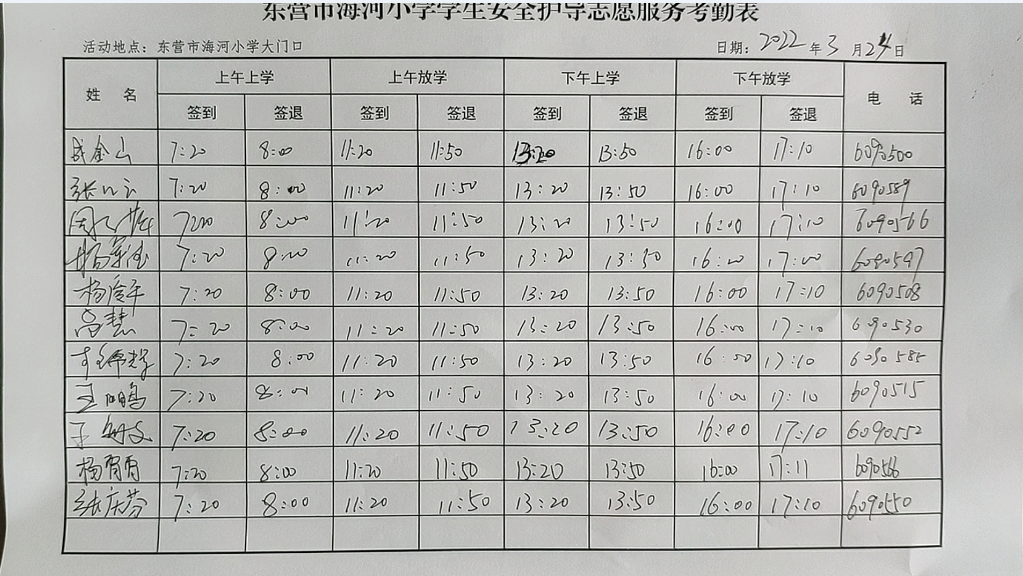 东营市海河小学学生安全护导志愿服务考勤表
活动地点：东营市海河小学大门口 日期：2022年3月24日
姓 名 上午上学 上午放学 下午上学 下午放学 电 话
签到 签退 签到 签退 签到 签退 签到 签退
成金山 7:20 8:00 11:20 11:50 13:20 13:50 16:00 17:10 6090500
7:20 8:00 11:20 11:50 13:20 13:50 16:00 17:10 6090589
7:20 8:00 11:20 11:50 13:20 13:50 16:00 17:10 6090566
7:20 8:00 11:20 11:50 13:20 13:50 16:00 17:00 6090597
7:20 8:00 11:20 11:50 13:20 13:50 16:00 17:10 6090508
吕慧 7:20 8:00 11:20 11:50 13:20 13:50 16:00 17:10 6090530
7:20 8:00 11:20 11:50 13:20 13:50 16:00 17:10 6090585
王鹏 7:20 8:00 11:20 11:50 13:20 13:50 16:00 17:10 6090515
7:20 8:00 11:20 11:50 13:20 13:50 16:00 17:10 6090552
杨育育 7:20 8:00 11:20 11:50 13:20 13:50 16:00 17:11 6090566
张庆芬 7:20 8:00 11:20 11:50 13:20 13:50 16:00 17:10 6090550